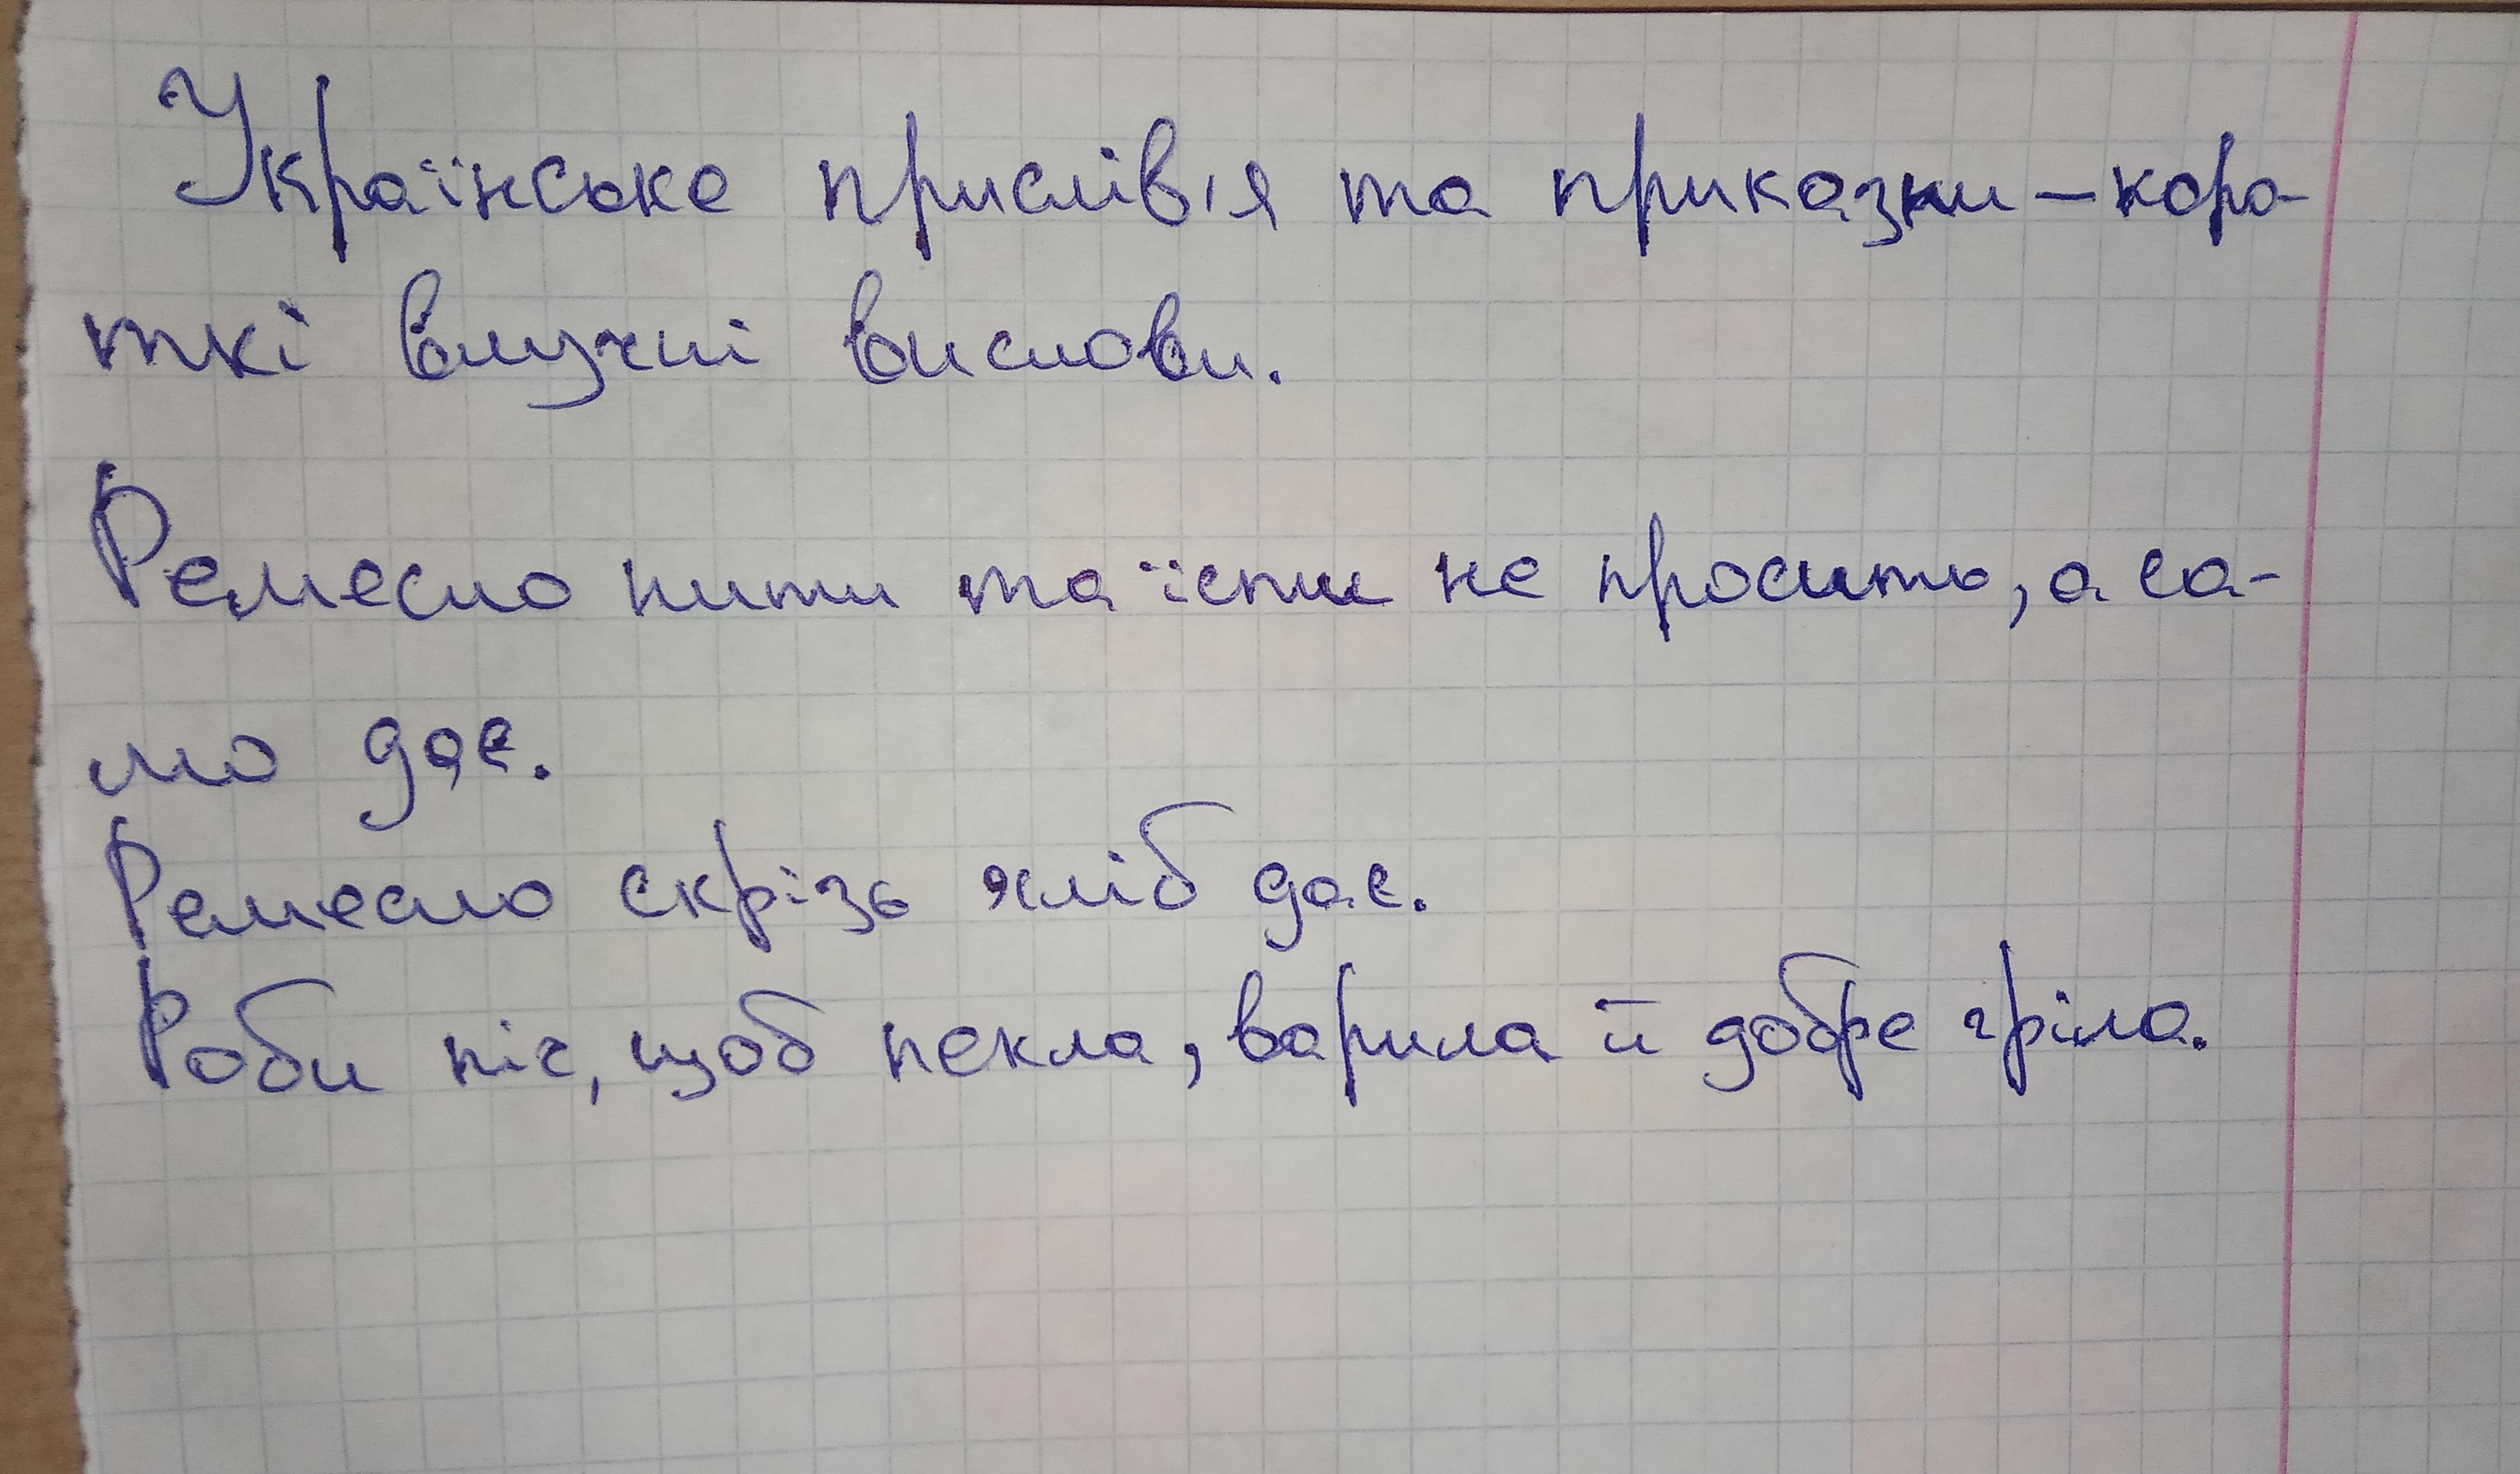 Українське прислів'я та приказки – коро-
ткі влучні вислови.
Ремесло пити та їсти не просить, а са-
мо дає.
Ремесло скрізь хліб дає.
Роби піч, щоб пекла, варила й добре гріла.